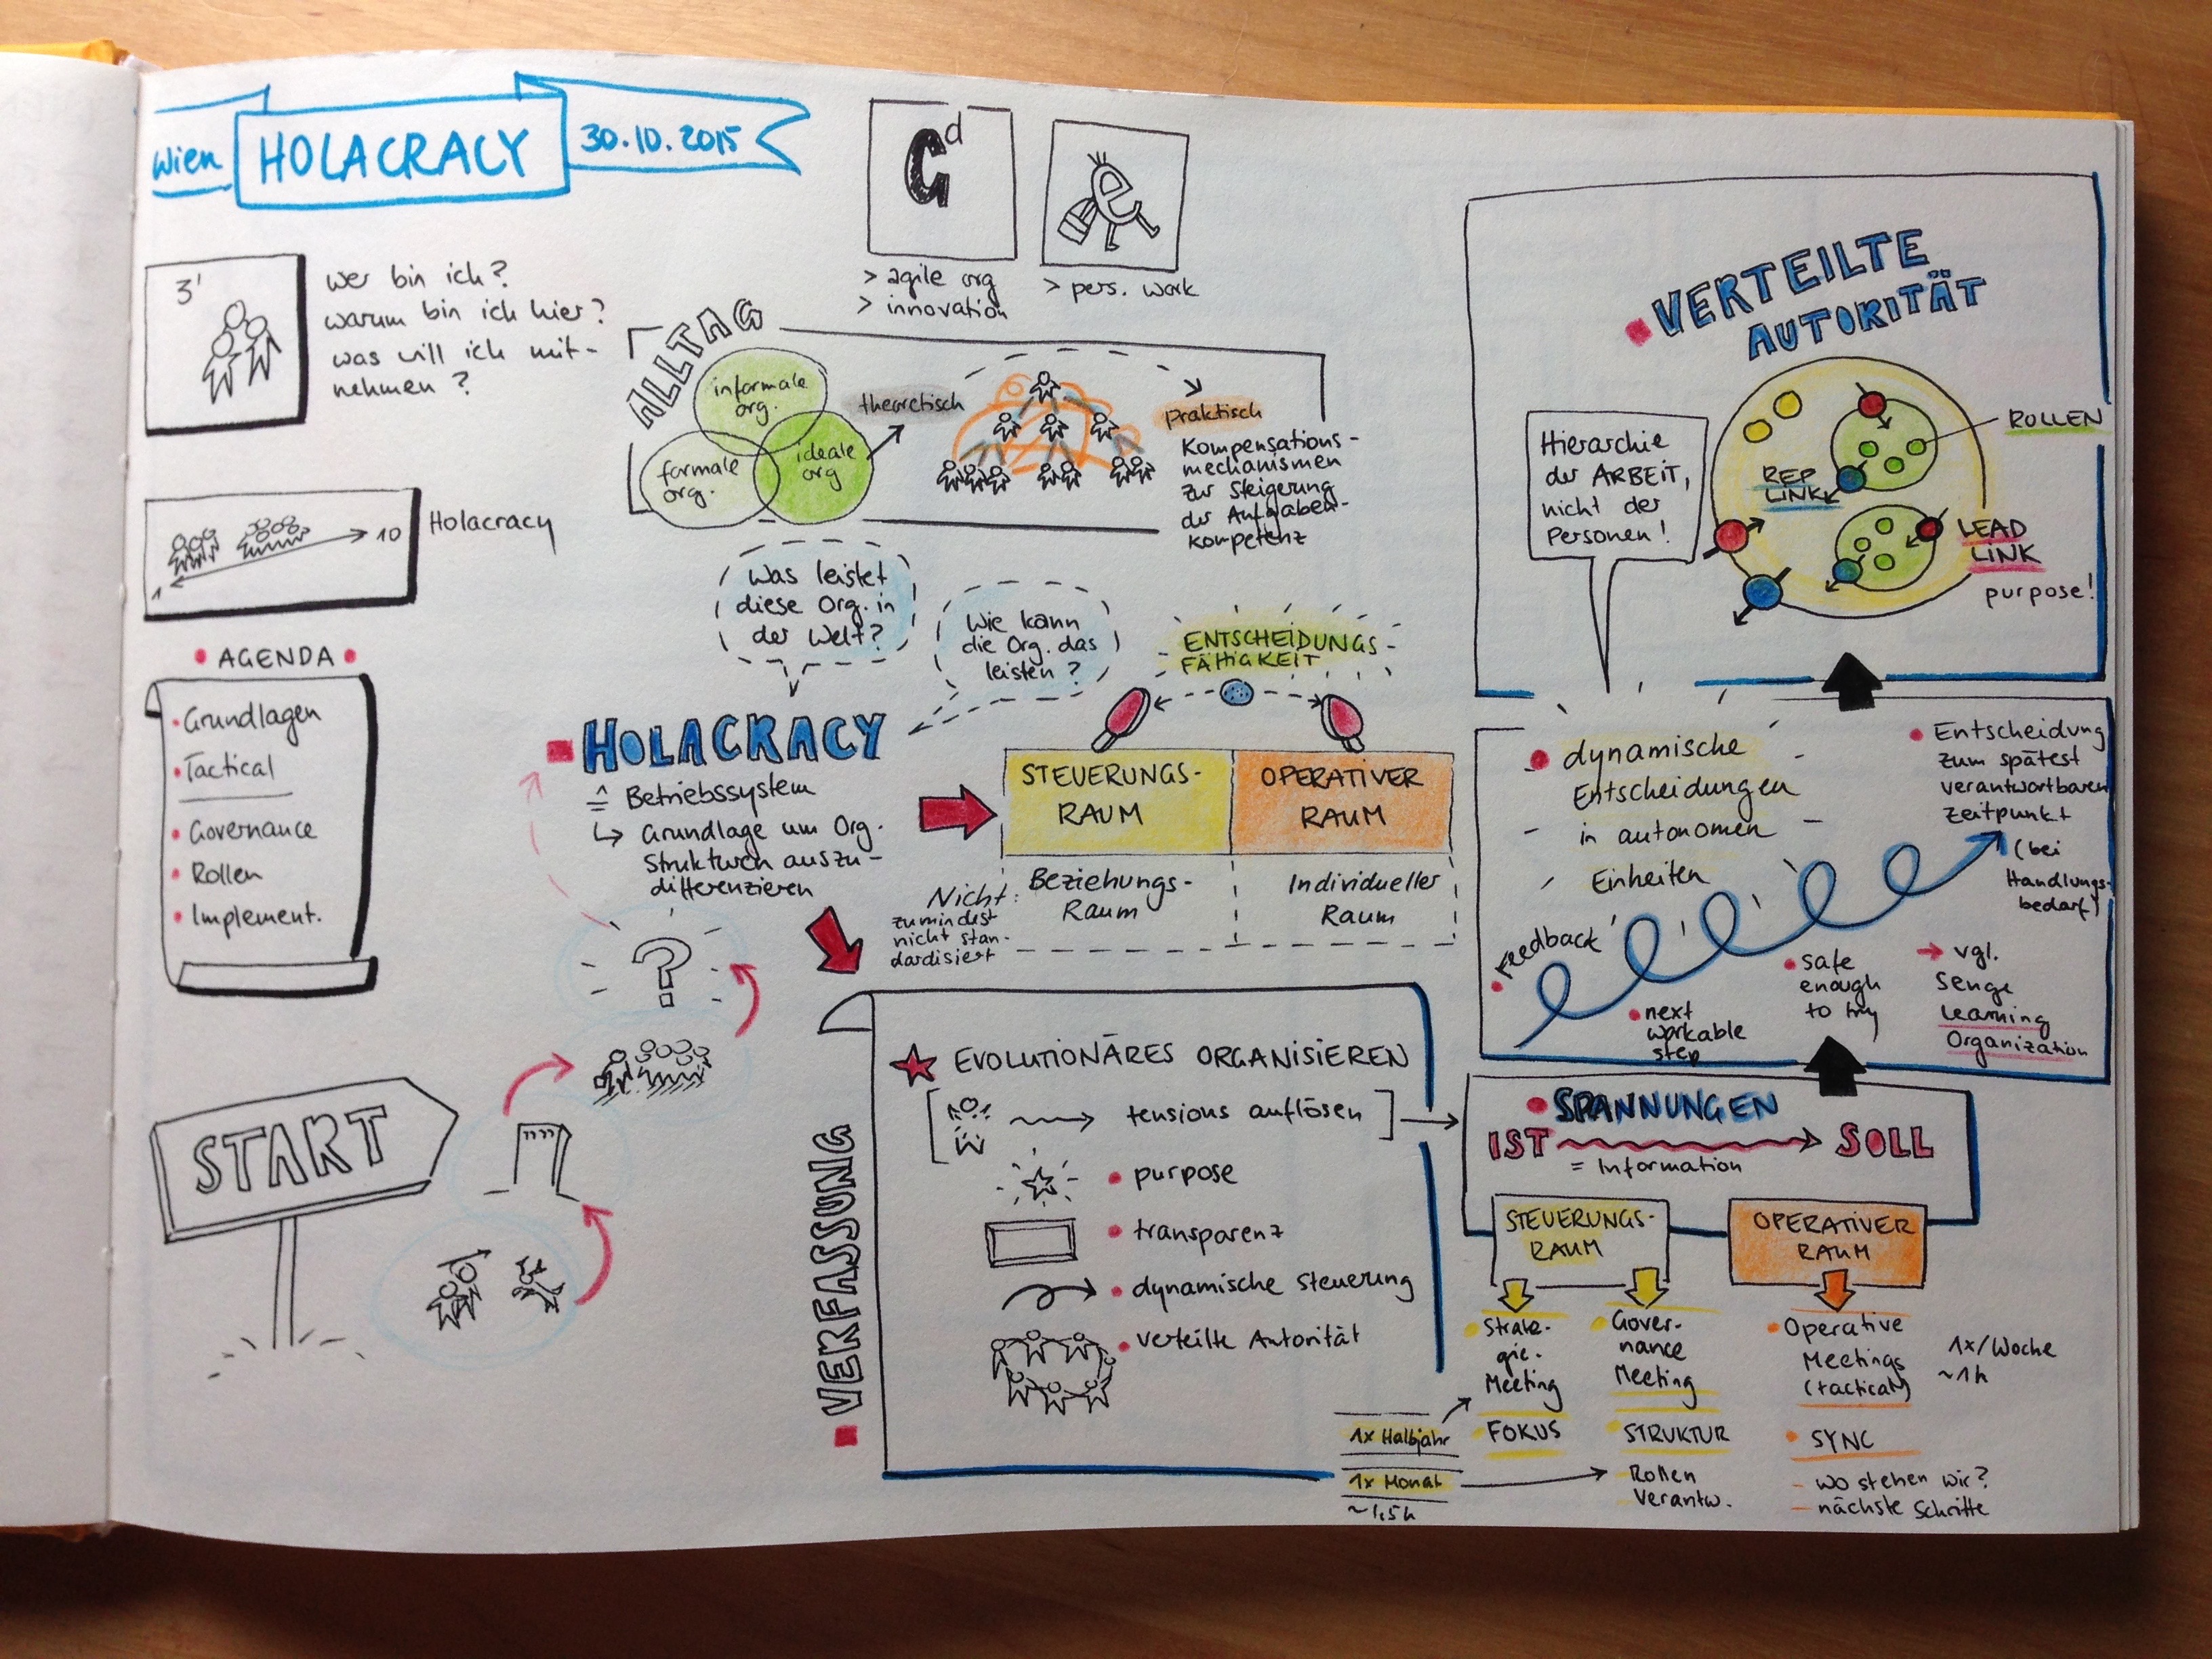 Wien
HOLACRACY
30.10.2015
3'
wer bin ich?
warum bin ich hier?
was will ich mit-
nehmen?
1
10
Holacracy
AGENDA
Grundlagen
Tactical
Governance
Rollen
Implement.
START
?
G d
> agile org
> innovation
e
> pers. work
ALLTAG
informale
org.
formale
org.
ideale
org
theoretisch
praktisch
Kompensations-
mechanismen
zur Steigerung
der Aufgaben-
kompetenz
Was leistet
diese Org. in
der Welt?
Wie kann
die Org. das
leisten?
ENTSCHEIDUNGS-
FÄHIGKEIT
HOLACRACY
≙ Betriebssystem
↳ Grundlage um Org.
Strukturen auszu-
differenzieren
STEUERUNGS-
RAUM
OPERATIVER
RAUM
Nicht:
zumindest
nicht stan-
dardisiert
Beziehungs-
Raum
Individueller
Raum
VERFASSUNG
EVOLUTIONÄRES ORGANISIEREN
tensions auflösen
purpose
transparenz
dynamische Steuerung
verteilte Autorität
VERTEILTE
AUTORITÄT
Hierarchie
der ARBEIT,
nicht der
Personen!
ROLLEN
REP
LINK
LEAD
LINK
purpose!
dynamische
Entscheidungen
in autonomen
Einheiten
Entscheidung
zum spätest
verantwortbaren
Zeitpunkt
(bei
Handlungs-
bedarf)
Feedback
next
workable
step
safe
enough
to try
→ vgl.
Senge
Learning
Organization
SPANNUNGEN
IST
SOLL
= Information
STEUERUNGS-
RAUM
OPERATIVER
RAUM
Strate-
gie-
Meeting
FOKUS
Gover-
nance
Meeting
STRUKTUR
Rollen
Verantw.
Operative
Meetings
(tactical)
1x/Woche
~1h
SYNC
- wo stehen wir?
- nächste Schritte
1x Halbjahr
1x Monat
~1,5h